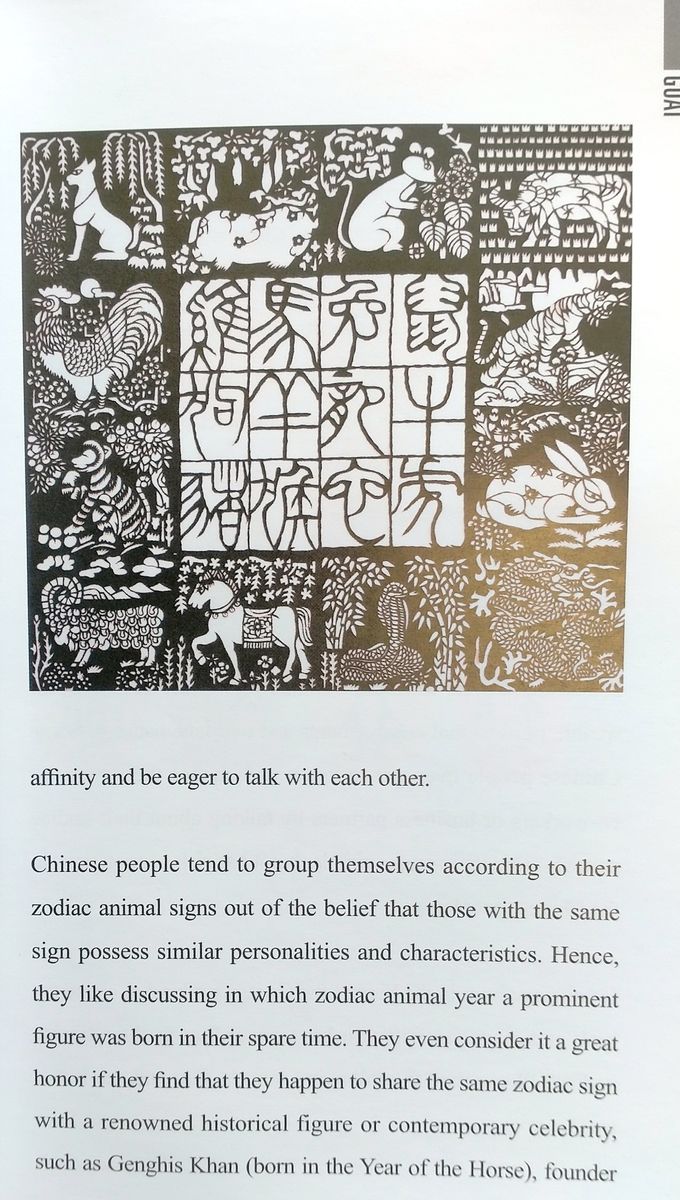 GUAI
鼠牛虎
兔
馬羊猴
雞狗豬
affinity and be eager to talk with each other.
Chinese people tend to group themselves according to their
zodiac animal signs out of the belief that those with the same
sign possess similar personalities and characteristics. Hence,
they like discussing in which zodiac animal year a prominent
figure was born in their spare time. They even consider it a great
honor if they find that they happen to share the same zodiac sign
with a renowned historical figure or contemporary celebrity,
such as Genghis Khan (born in the Year of the Horse), founder